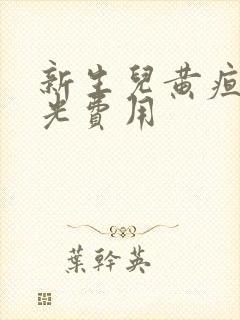 新生兒黃疸
光費用
葉幹英